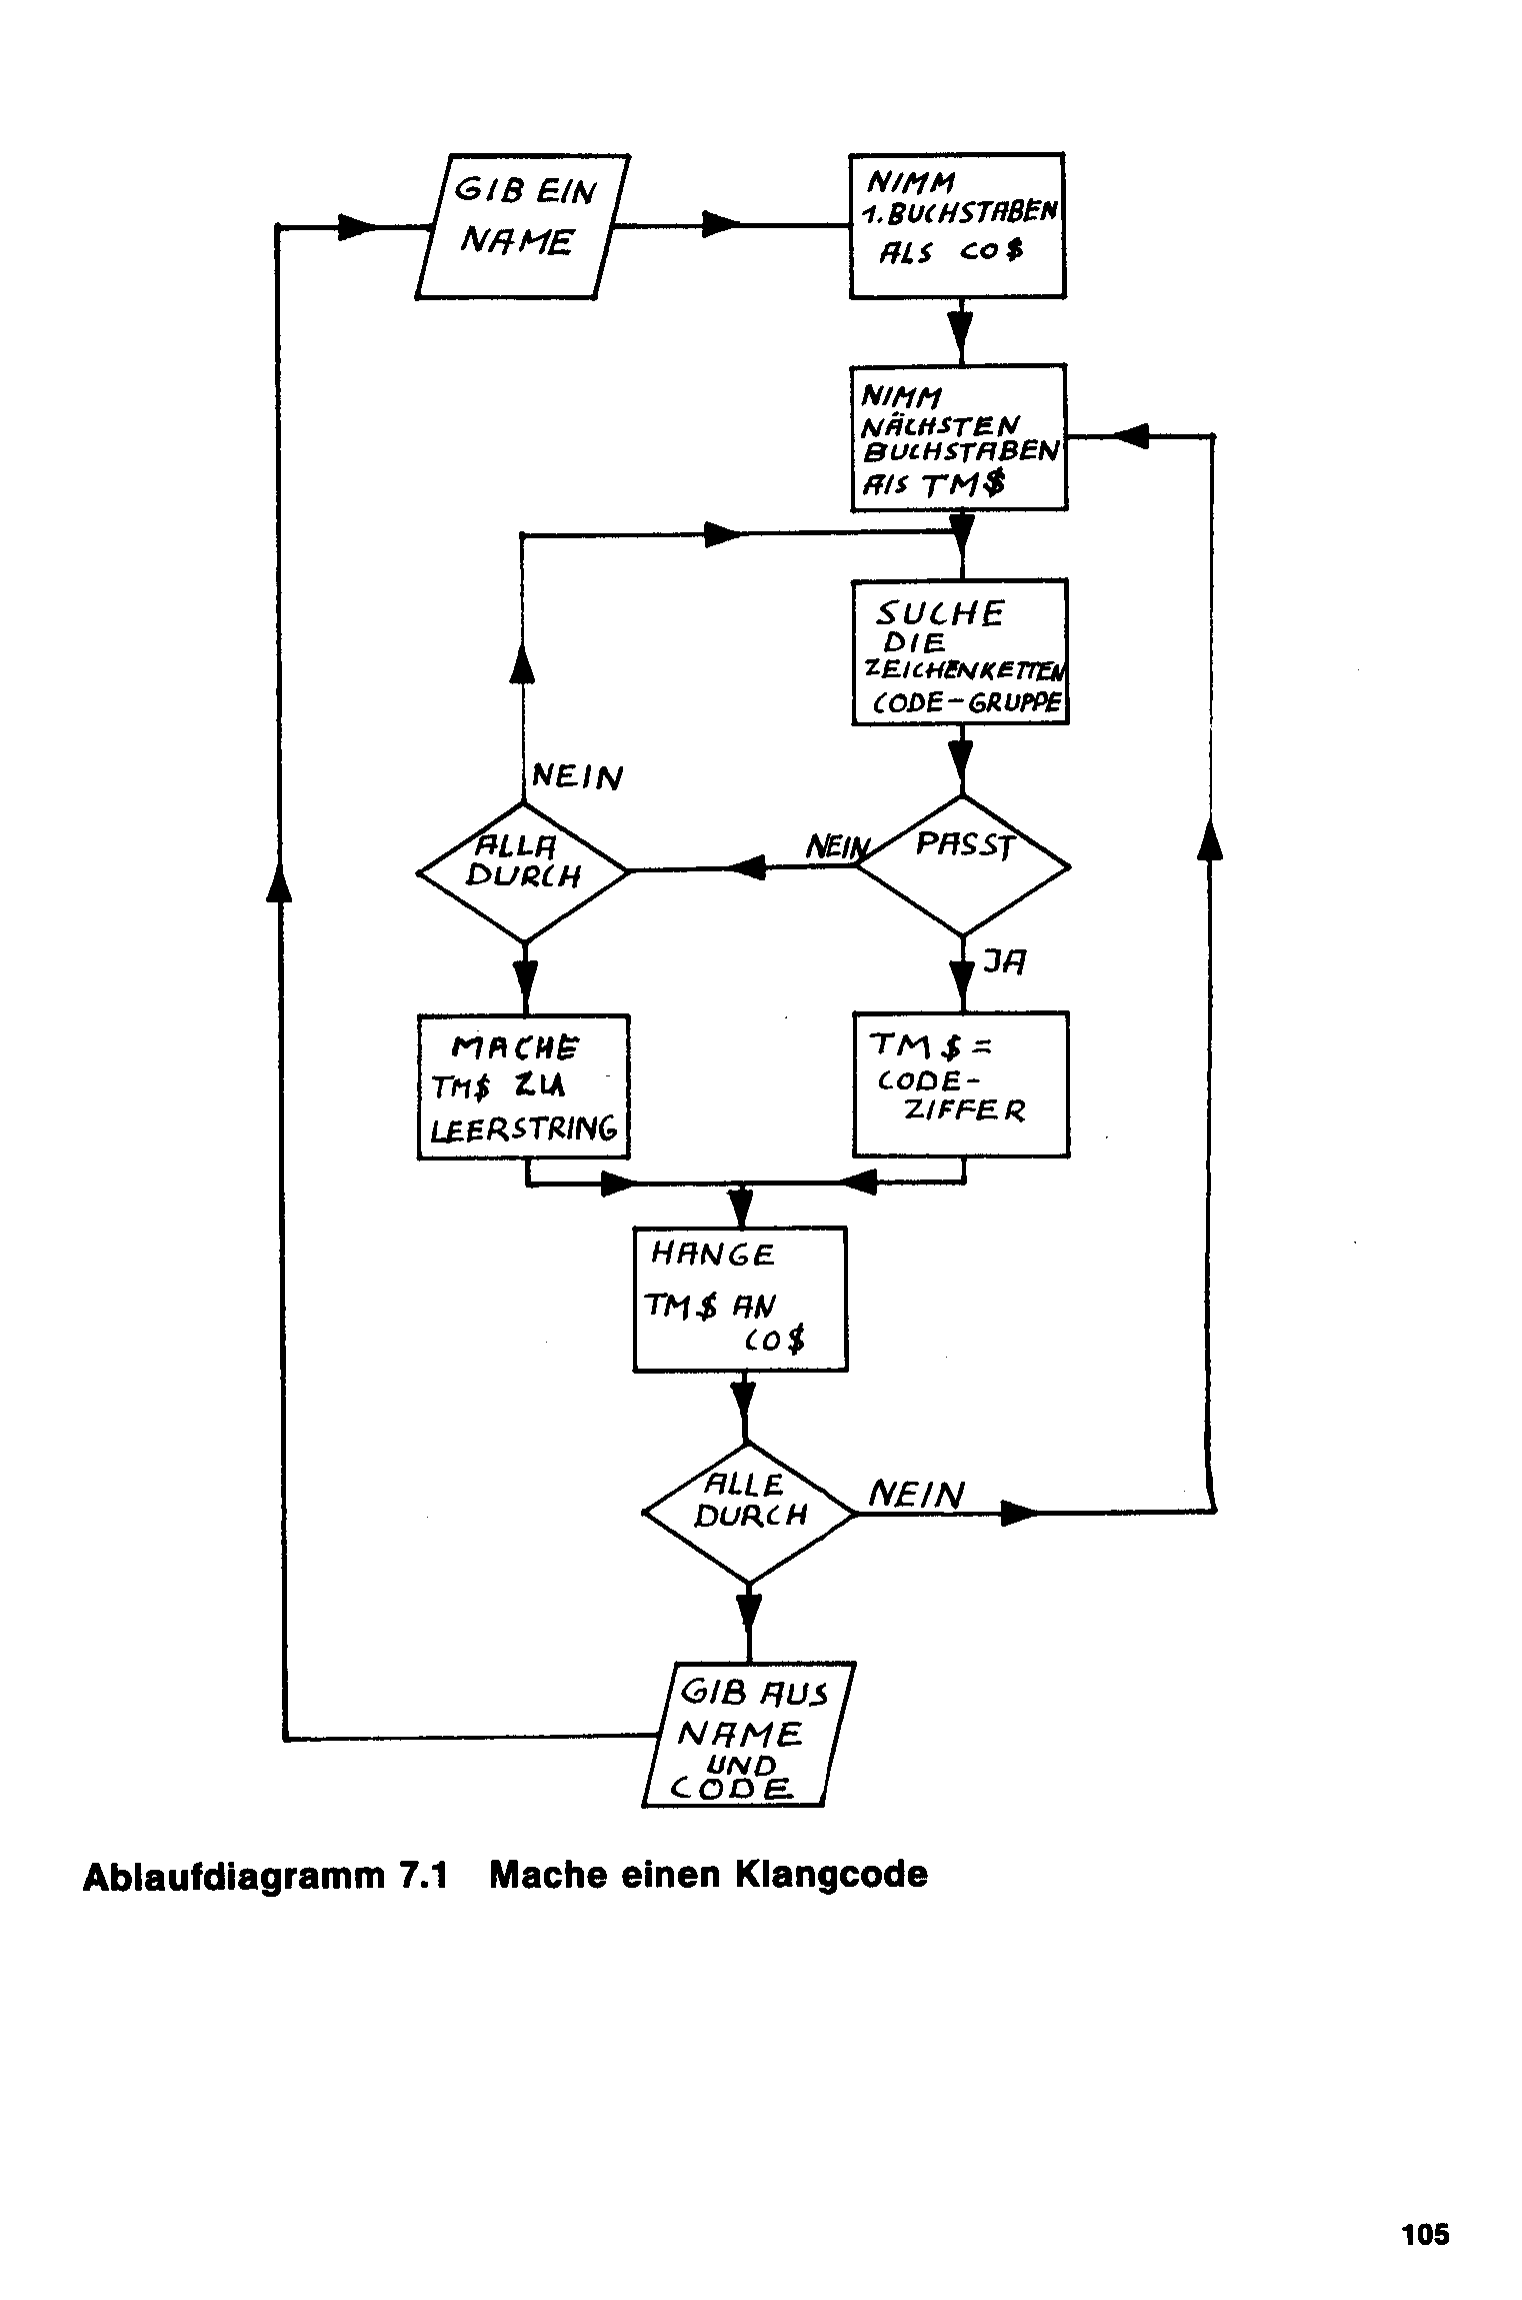 GIB EIN
NAME
NIMM
1. BUCHSTABEN
ALS CO$
NIMM
NÄCHSTEN
BUCHSTABEN
AlS TM$
SUCHE
DIE
ZEICHENKETTEN
CODE-GRUPPE
NEIN
ALLA
DURCH
NEIN
PASST
JA
MACHE
TM$ ZU
LEERSTRING
TM$=
CODE-
ZIFFER
HANGE
TM$ AN
CO$
ALLE
DURCH
NEIN
GIB AUS
NAME
UND
CODE
Ablaufdiagramm 7.1 Mache einen Klangcode
105